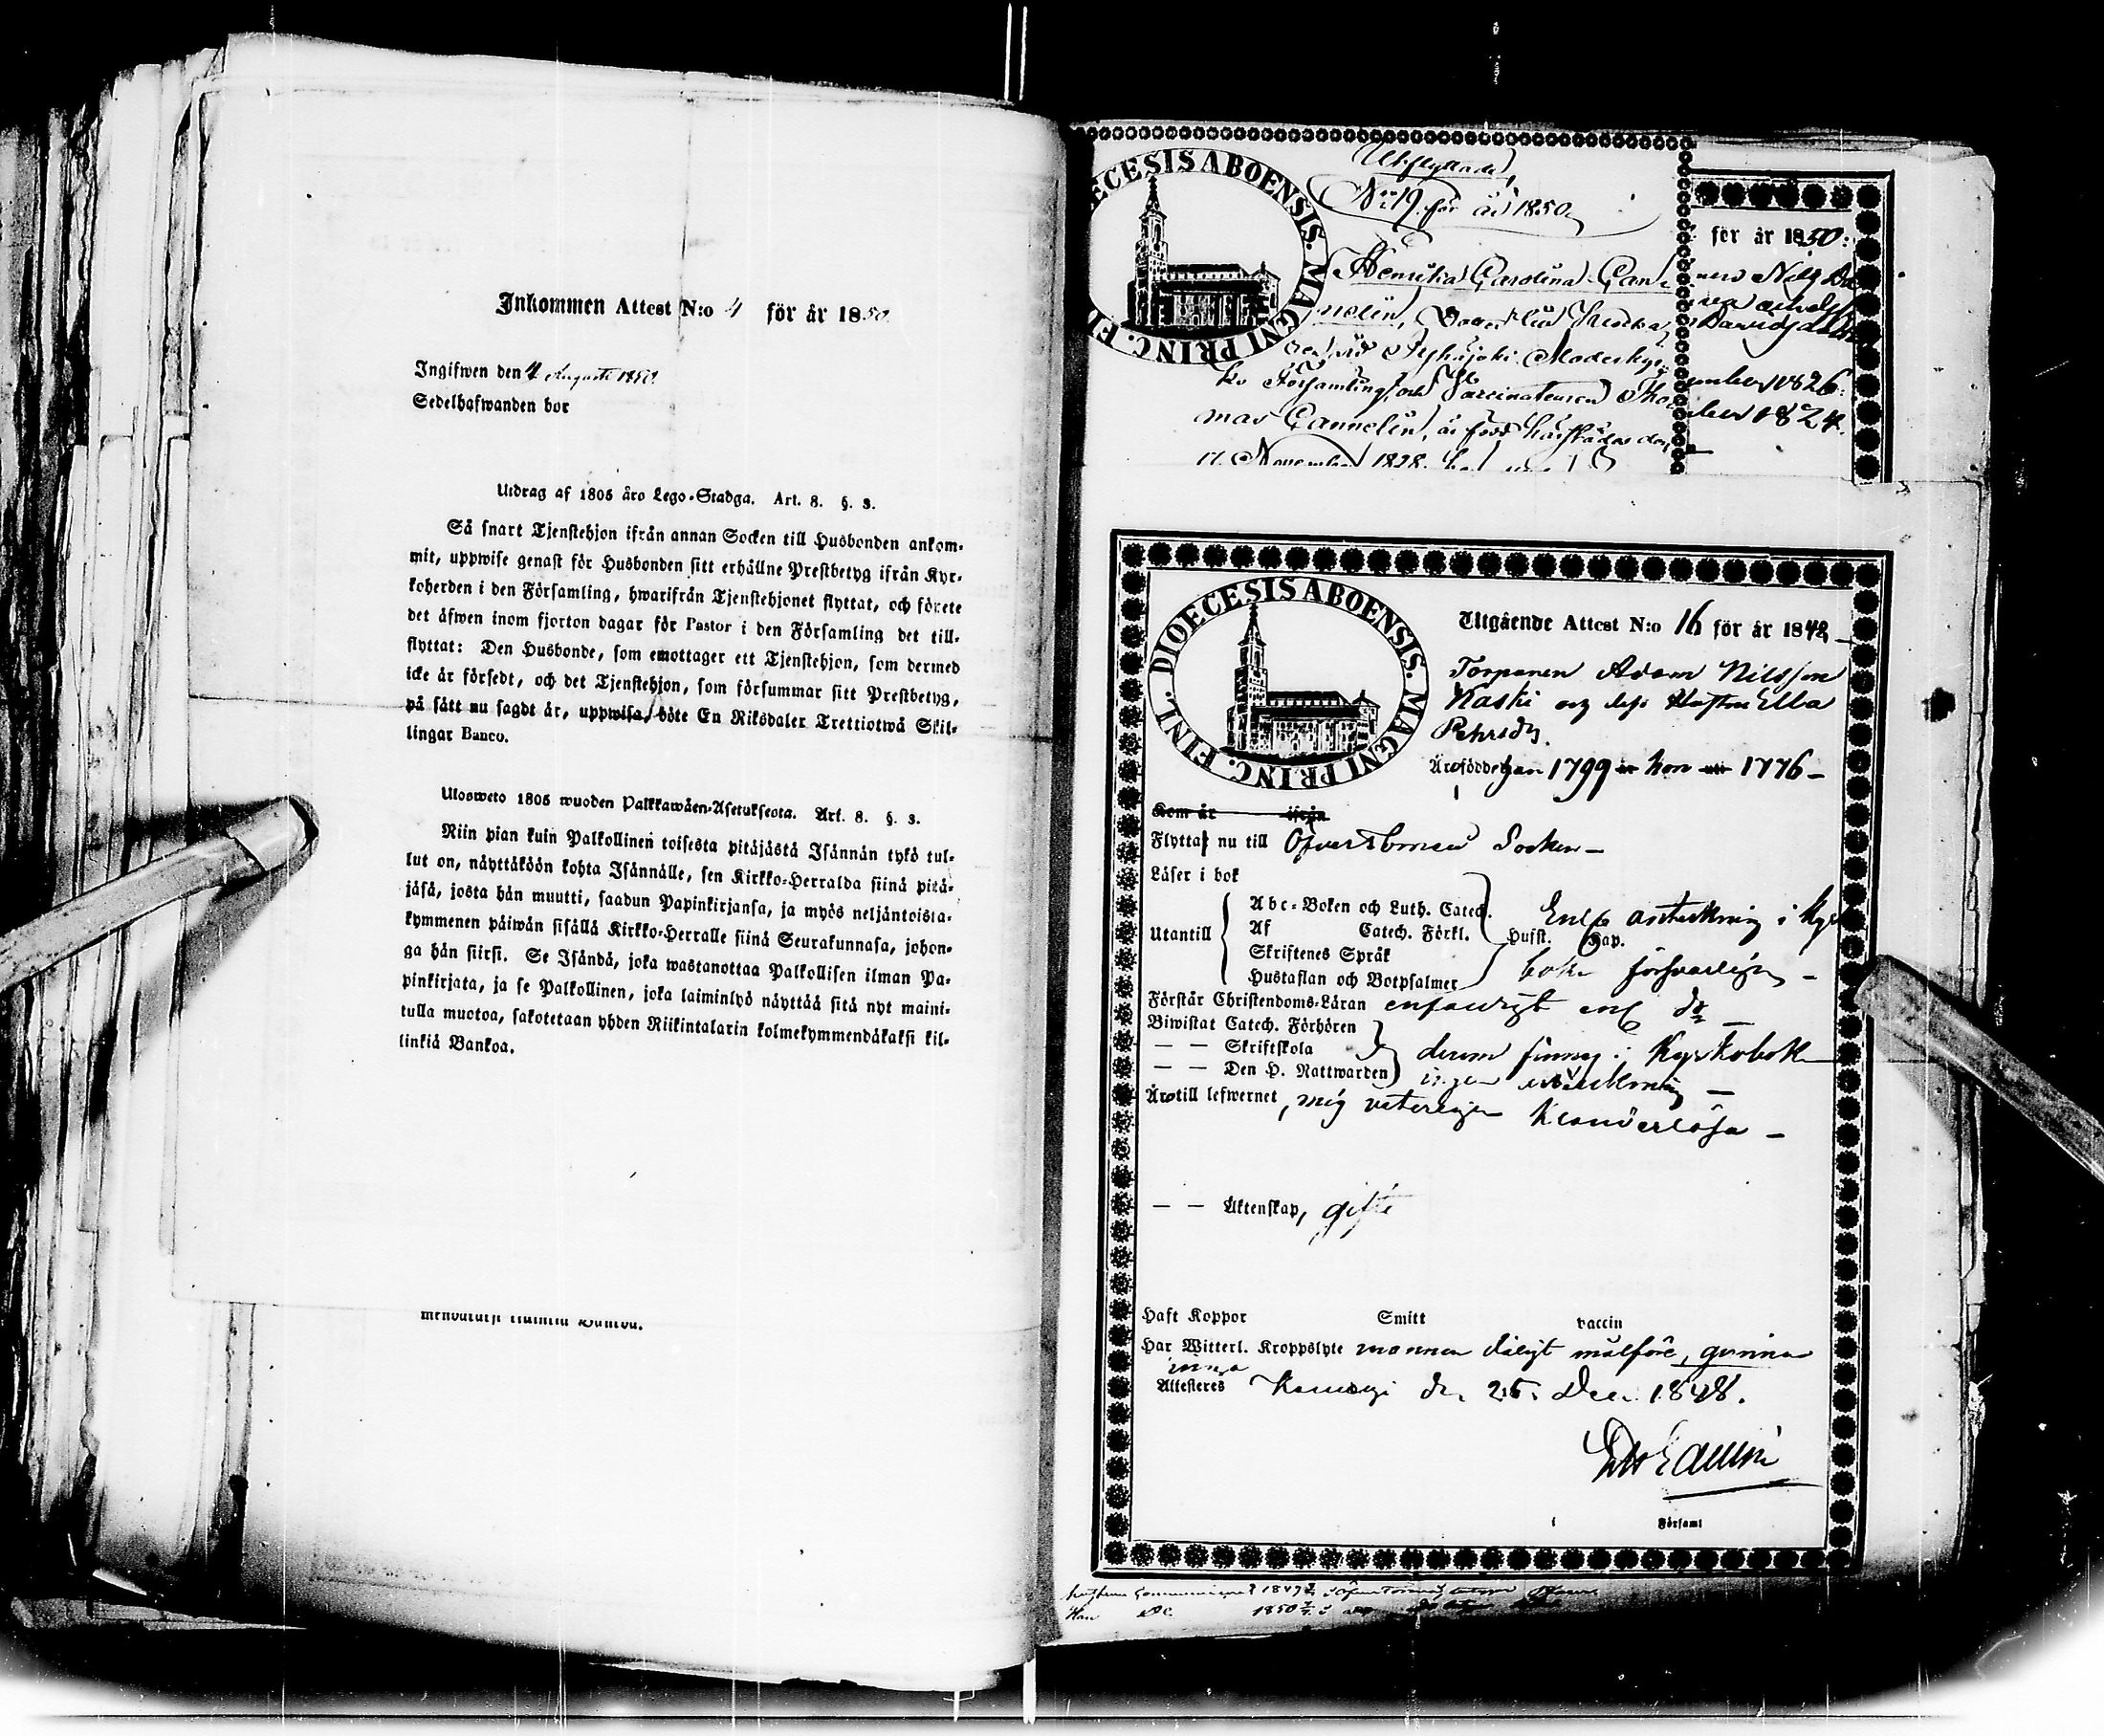 Inkommen Attest N:o 4 för år 1850.
Ingifwen den 4 Augusti 1850
Sedelhafwanden bor
Utdrag af 1805 åro Lego-Stadga. Art. 8. §. 3.
Så snart Tjenstehjon ifrån annan Socken till Husbonden ankom-
mit, uppwise genast för Husbonden sitt erhållne Prestbetyg ifrån Kyr-
koherden i den Församling, hwarifrån Tjenstehjonet flyttat, och förete
det äfwen inom fjorton dagar för Pastor i den Församling det till-
flyttat: Den Husbonde, som emottager ett Tjenstehjon, som dermed
icke är försedt, och det Tjenstehjon, som försummar sitt Prestbetyg,
på sätt nu sagdt är, uppwisa, böte En Riksdaler Trettiotwå Skil-
lingar Banco.
Ulosweto 1805 wuoden Palkkawäen-Asetuksesta. Art. 8. §. 3.
Niin pian kuin Palkollinen toisesta pitäjästä Isännän tykö tul-
lut on, näyttäköön kohta Isännälle, sen Kirkko-Herralda siinä pitä-
jäsä, josta hän muutti, saadun Papinkirjansa, ja myös neljäntoista-
kymmenen päiwän sisällä Kirkko-Herralle siinä Seurakunnasa, johon-
ga hän siirsi. Se Isändä, joka wastanottaa Palkollisen ilman Pa-
pinkirjata, ja se Palkollinen, joka laiminlyö näyttää sitä nyt maini-
tulla muotoa, sakotetaan yhden Riikintalarin kolmekymmendäkaksi kil-
linkiä Bankoa.
DIOECESIS ABOENSIS. MAGNI PRINC. FI
Utflyttade,
N:o 19. för år 1850,
Henrika Carolina Can-
nelin,
Pyhäjoki Moderkyr-
ko Församling, och Vaccinateuren Tho-
mas Cannelin, är född härstädes den
17. November 1828.
för år 1850:
Nils
Davidsdotter
ember 1826.
ber 1824.
DIOECESIS ABOENSIS. MAGNI PRINC. FINL.
Utgående Attest N:o 16 för år 1848
Torparen Adam Nilsson
Kaski och dess Hustru Ella
Pehrsdr.
Äro födde han 1799 hon 1776 –
Kom år ifrån
Flyttat nu till Öfver Socken –
Läser i bok
Abc-Boken och Luth. Catech.
Enl. anteckning i Kyr
Utantill
Af Catech. Förkl. Husst. Cap.
Skriftenes Språk
Hustaflan och Botpsalmer
boken försvarligen –
Förstår Christendoms-Läran enfaldigt enl. do
Biwistat Catech. Förhören
— — Skriftskola
derom finnes i Kyrkobok
— — Den H. Nattwarden
ingen anteckning –
Äro till lefwernet, mig veterligen klanderlösa –
— — Äktenskap, gifte
Haft Koppor Smitt vaccin
Har Witterl. Kroppslyte mannen dåligt målföre, qvinnan
inga
Attesteres den 25. Dec. 1848.
i Församl